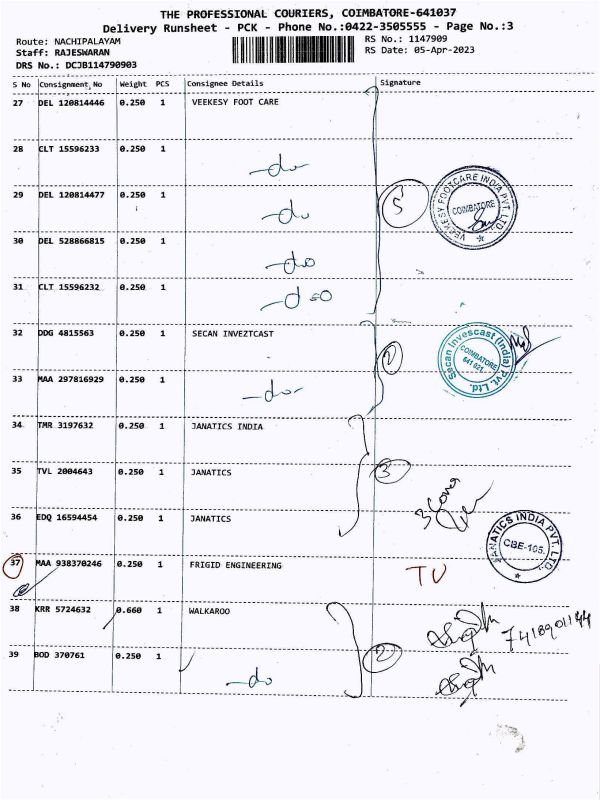 THE PROFESSIONAL COURIERS, COIMBATORE-641037
Delivery Runsheet - PCK - Phone No.:0422-3505555 - Page No.:3
Route: NACHIPALAYAM
Staff: RAJESWARAN
DRS No.: DCJB114790903
RS No.: 1147909
RS Date: 05-Apr-2023
S No Consignment No Weight PCS Consignee Details Signature
27 DEL 120814446 0.250 1 VEEKESY FOOT CARE
28 CLT 15596233 0.250 1 -do-
29 DEL 120814477 0.250 1 -do
30 DEL 528866815 0.250 1 -do
31 CLT 15596232 0.250 1 -do
5
VEEKESY FOOTCARE INDIA PVT. LTD.
COIMBATORE
32 DDG 4815563 0.250 1 SECAN INVEZTCAST
33 MAA 297816929 0.250 1 -do-
2
Secan Invescast (India) Pvt. Ltd.
COIMBATORE
641 021
34 TMR 3197632 0.250 1 JANATICS INDIA
35 TVL 2004643 0.250 1 JANATICS
36 EDQ 16594454 0.250 1 JANATICS
3
JANATICS INDIA PVT. LTD.
CBE-105.
37 MAA 938370246 0.250 1 FRIGID ENGINEERING
38 KRR 5724632 0.660 1 WALKAROO
39 BOD 370761 0.250 1 -do
2